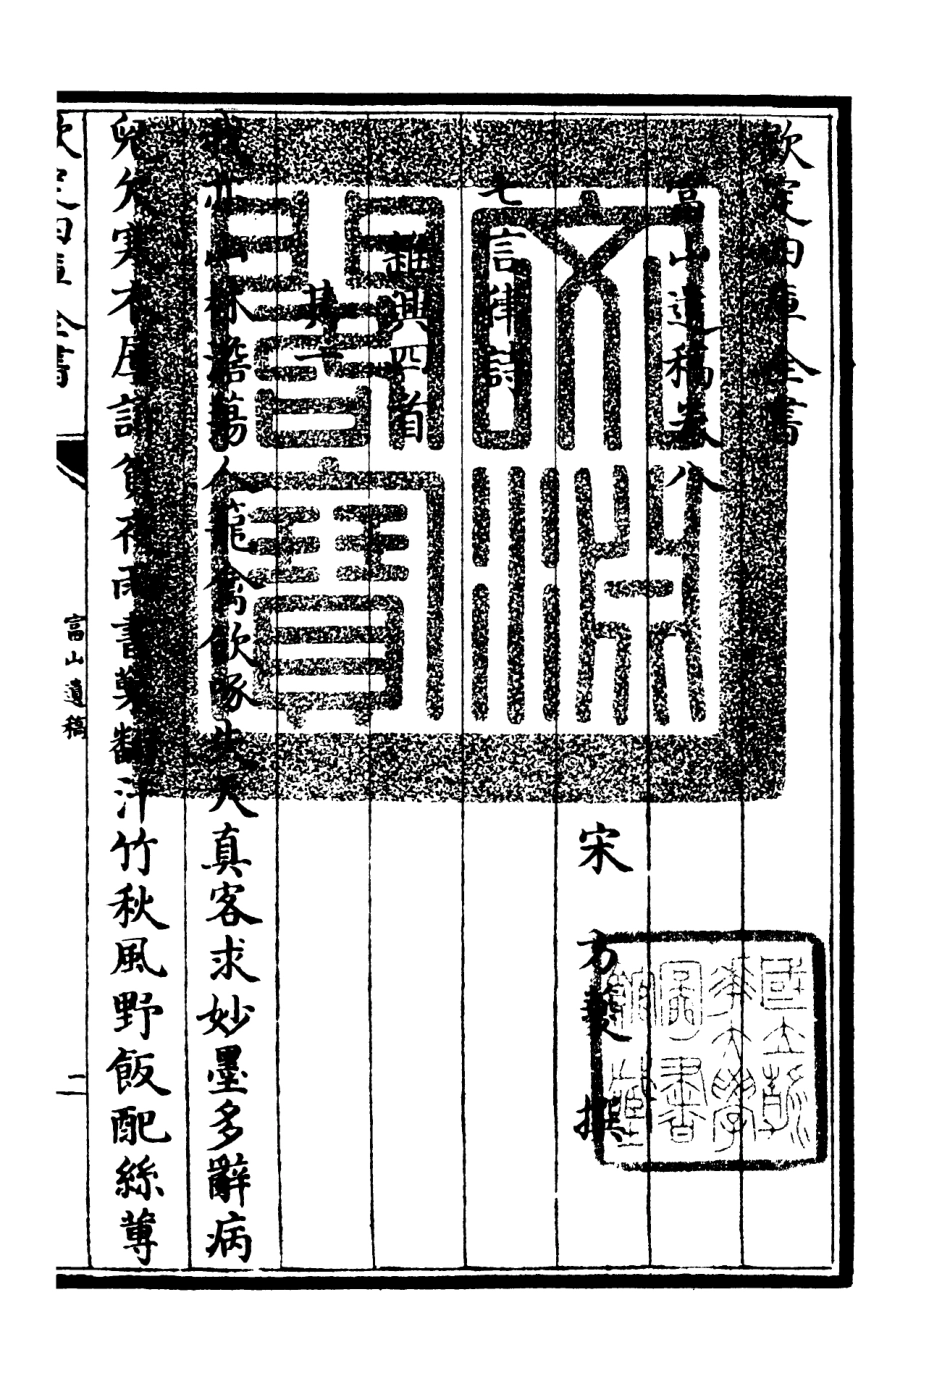 欽定四庫全書
富山遺稿卷八
宋 方夔 撰
七言律詩
雜興四首
其一
我亦山林澹蕩人籠禽飲啄失天真客求妙墨多辭病
兒欠寒衣屢訴貧夜雨書翻汗竹秋風野飯配絲蓴
欽定四庫全書
富山遺稿
文淵閣寶
國立大學圖書館藏